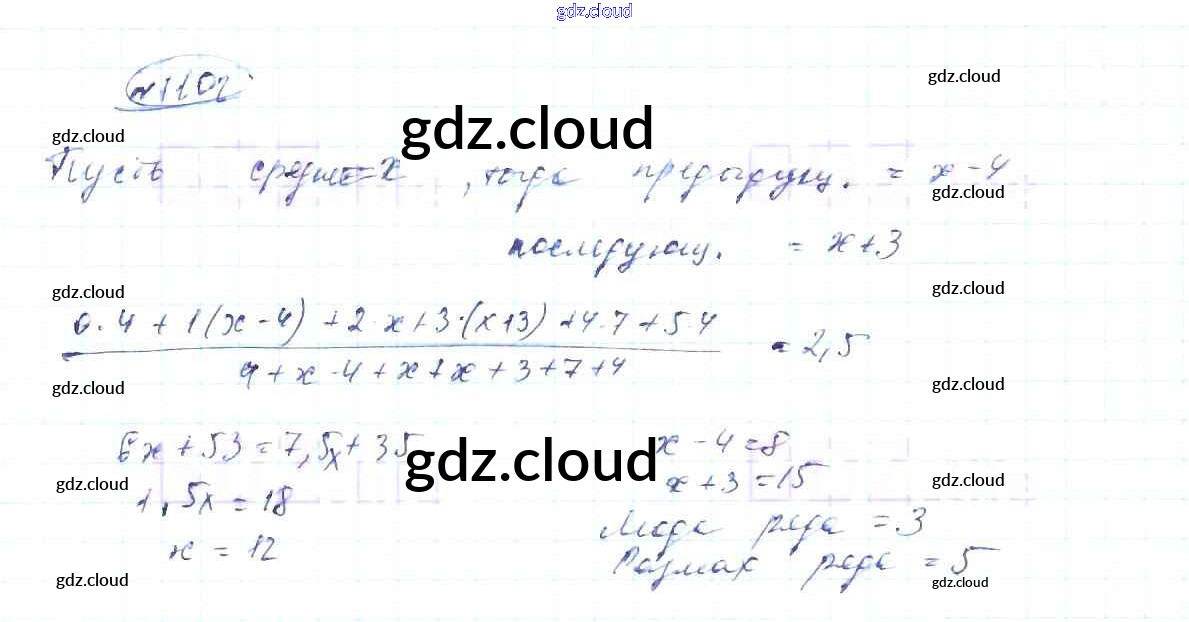 gdz.cloud
№1102
gdz.cloud
gdz.cloud
gdz.cloud
Пусть средне=x, тогда предыдущ. = x-4
gdz.cloud
последующ. = x+3
gdz.cloud
gdz.cloud
0·4+1(x-4)+2·x+3·(x+3)+4·7+5·4
= 2,5
4+x-4+x+x+3+7+4
gdz.cloud
gdz.cloud
6x+53=7,5x+35
x-4=8
gdz.cloud
gdz.cloud
gdz.cloud
x+3=15
1,5x=18
Мода ряда = 3
x = 12
Размах ряда = 5
gdz.cloud
gdz.cloud